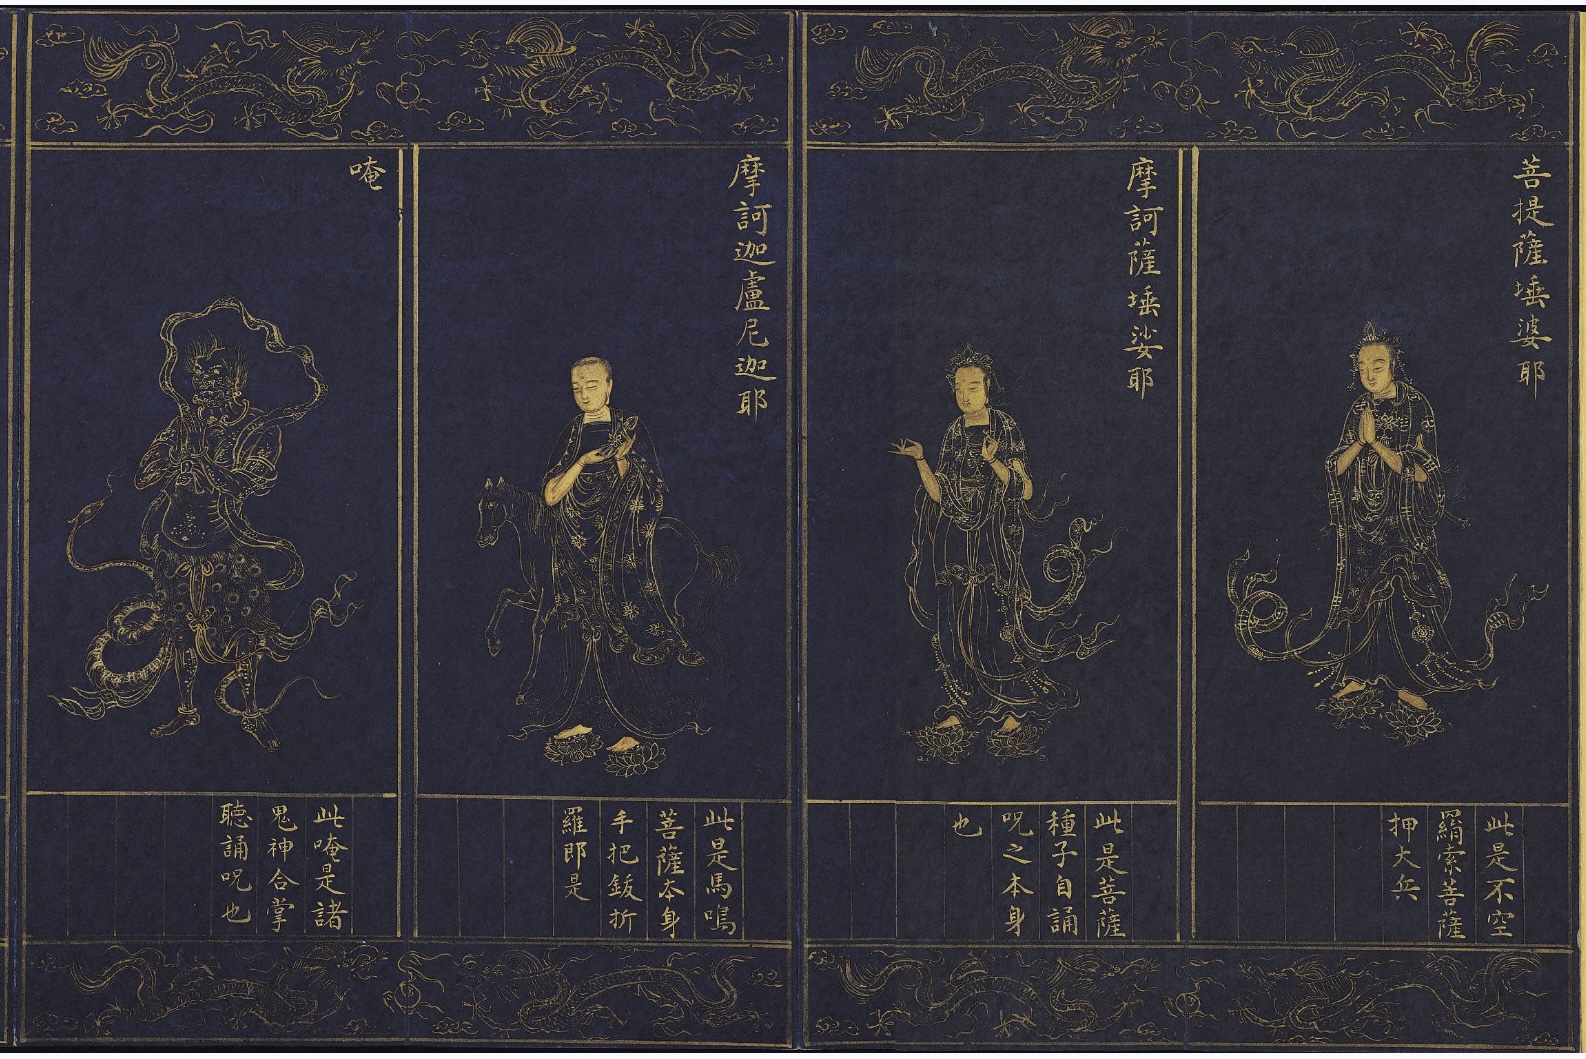 菩提薩埵婆耶
此是不空
羂索菩薩
押大兵
摩訶薩埵娑耶
此是菩薩
種子自誦
呪之本身
也
摩訶迦盧尼迦耶
此是馬鳴
菩薩本身
手把鈸折
羅即是
唵
此唵是諸
鬼神合掌
聽誦呪也